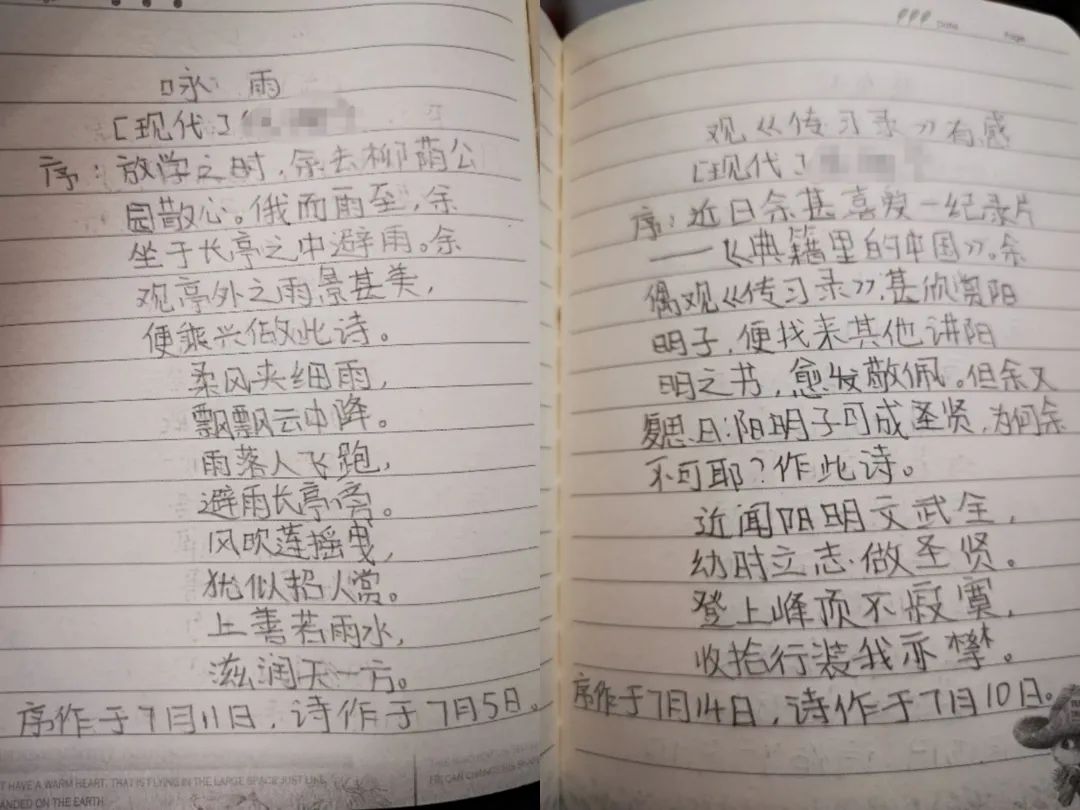 咏 雨
[现代]
序：放学之时，余去柳荫公
园散心。俄而雨至，余
坐于长亭之中避雨。余
观亭外之雨景甚美，
便乘兴做此诗。
柔风夹细雨，
飘飘云中降。
雨落人飞跑，
避雨长亭旁。
风吹莲摇曳，
犹似招人赏。
上善若雨水，
滋润天一方。
序作于7月11日，诗作于7月5日。
T HAVE A WARM HEART, THAT IS FLYING IN THE LARGE SPACE JUST LIKE
ANDED ON THE EARTH
Date Page
观《传习录》有感
[现代]
序：近日余甚喜爱一纪录片
——《典籍里的中国》。余
偶观《传习录》，甚欣赏阳
明子，便找来其他讲阳
明之书，愈发敬佩。但余又
复思曰：阳明子可成圣贤，为何余
不可耶？作此诗。
近闻阳明文武全，
幼时立志做圣贤。
登上峰顶不寂寞，
收拾行装我亦攀。
序作于7月14日，诗作于7月10日。